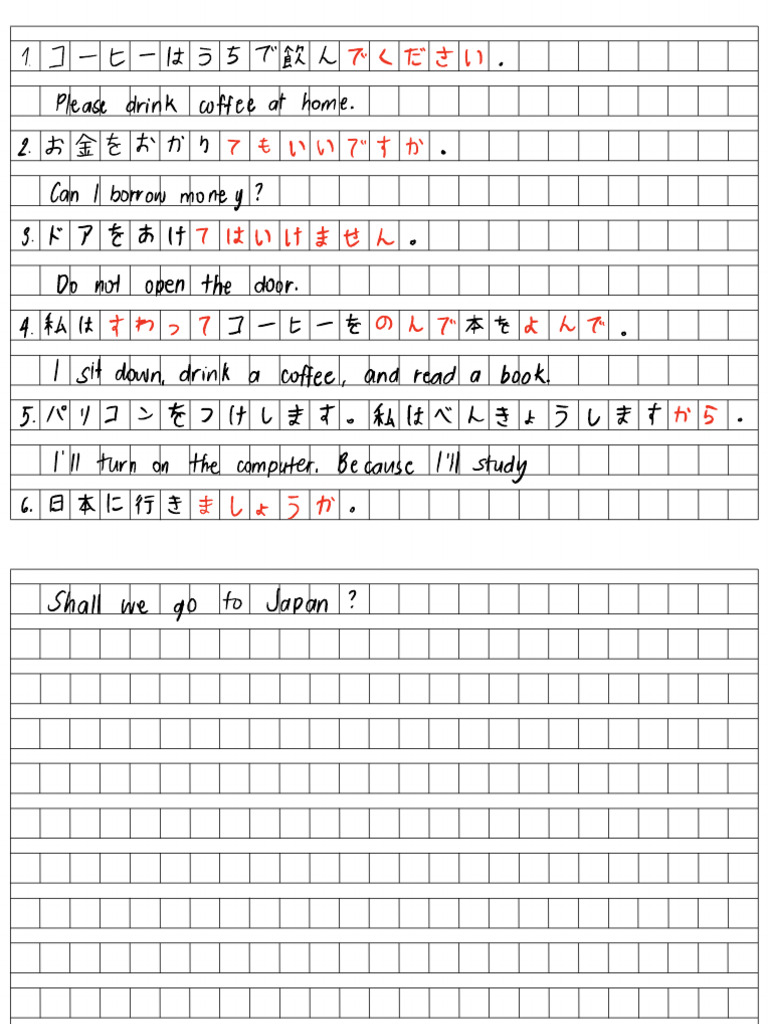 1. コーヒーはうちで飲んでください.
Please drink coffee at home.
2. お金をおかりてもいいですか.
Can I borrow money?
3. ドアをあけてはいけません。
Do not open the door.
4. 私はすわってコーヒーをのんで本をよんで.
I sit down, drink a coffee, and read a book.
5. パソコンをつけします。私はべんきょうしますから.
I'll turn on the computer. Because I'll study
6. 日本に行きましょうか。
Shall we go to Japan?